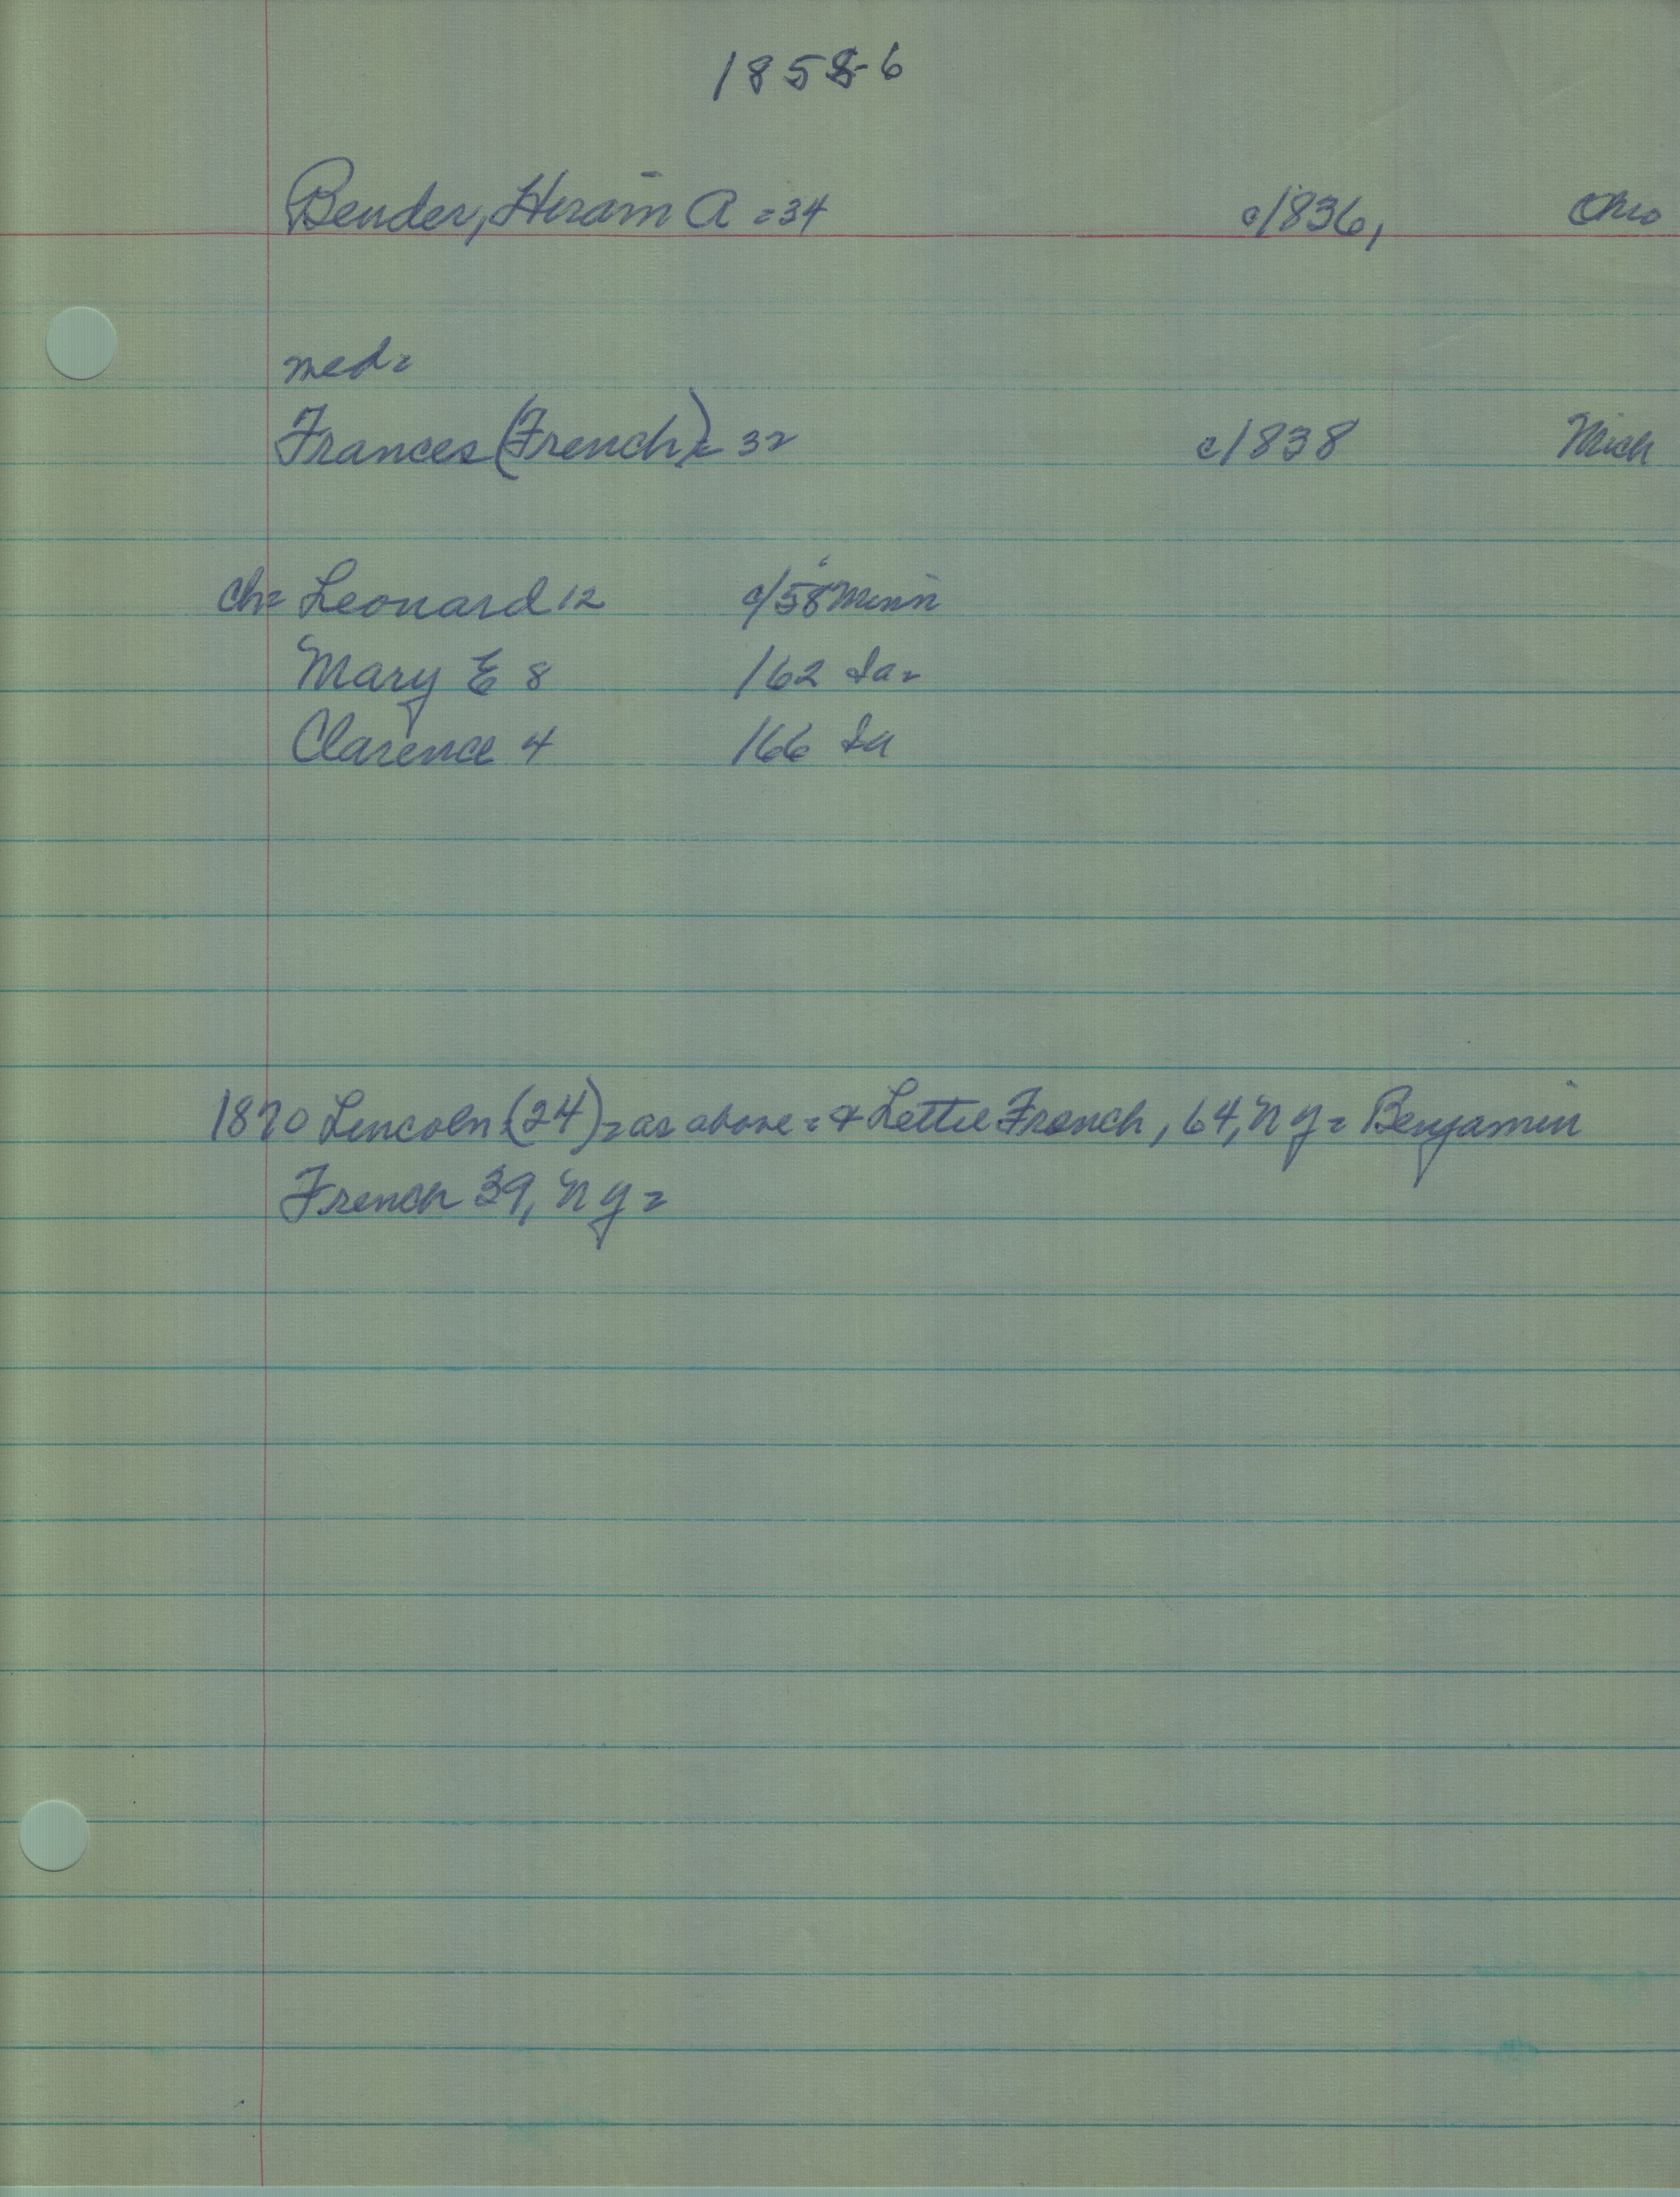 1858-6
Bender, Hiram A = 34 c/1836, Ohio
med =
Frances (French) = 32 c/1838 Mich
ch = Leonard 12 c/58 Minn
Mary E 8 /62 Ia =
Clarence 4 /66 Ia
1870 Lincoln (24) = as above = & Lettie French, 64, NY = Benjamin
French 39, NY =